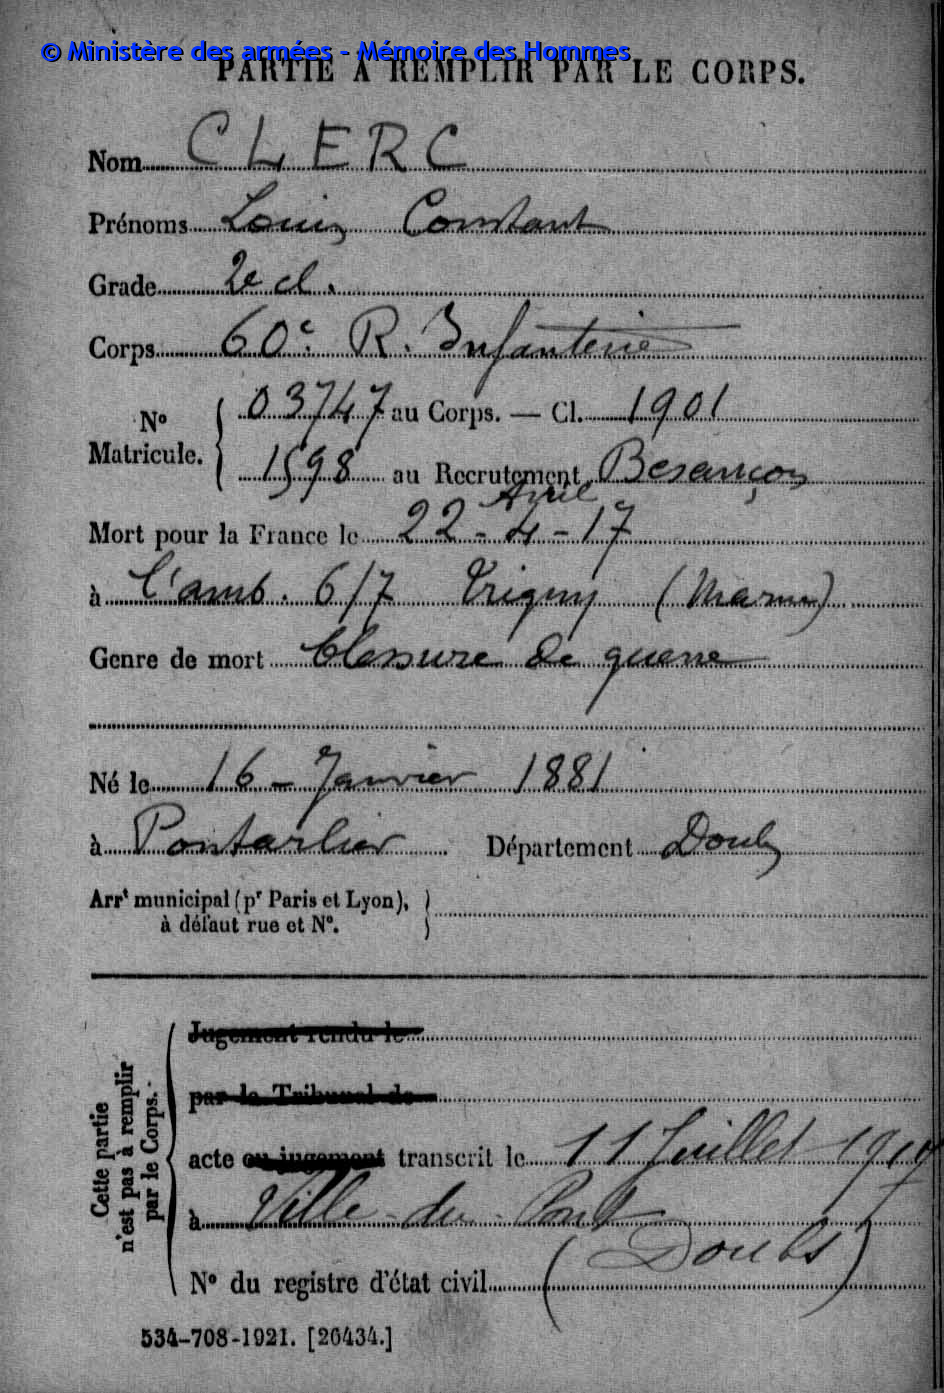 © Ministère des armées - Mémoire des Hommes
PARTIE A REMPLIR PAR LE CORPS.
Nom CLERC
Prénoms Louis Constant
Grade 2e cl.
Corps 60e R. Infanterie
N° Matricule. { 03747 au Corps. — Cl. 1901
1598 au Recrutement Besançon
Avril
Mort pour la France le 22-4-17
à l'amb. 6/7 Trigny (Marne)
Genre de mort blessure de guerre
Né le 16 - Janvier 1881
à Pontarlier Département Doubs
Arrt municipal (pr Paris et Lyon),
à défaut rue et N°.
Cette partie
n'est pas à remplir
par le Corps.
Jugement rendu le
par le Tribunal de
acte ou jugement transcrit le 11 Juillet 1917
à Ville-du-Pont
(Doubs)
N° du registre d'état civil
534-708-1921. [26434.]